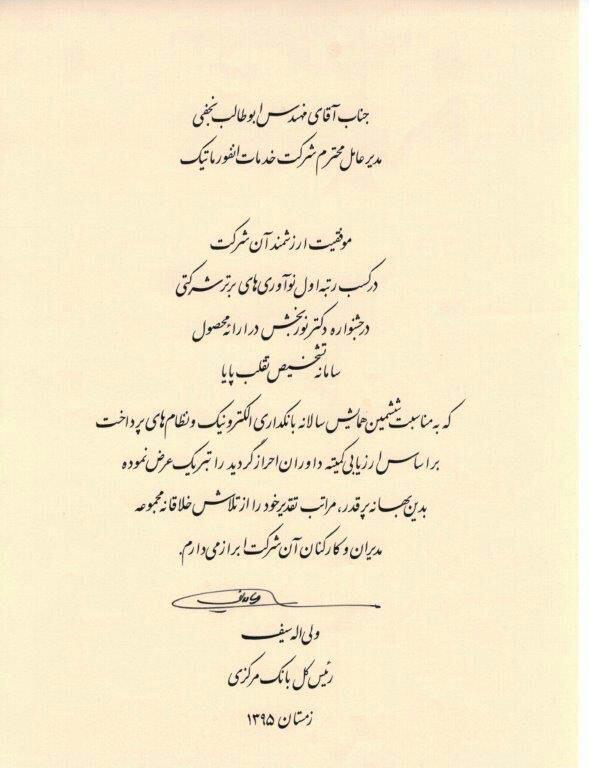 جناب آقای مهندس ابوطالب نجفی
مدیر عامل محترم شرکت خدمات انفورماتیک
موفقیت ارزشمند آن شرکت
در کسب رتبه اول نوآوری‌های برتر شرکتی
در جشنواره دکتر نوربخش در ارائه محصول
سامانه تشخیص تقلب پایا
که به مناسبت ششمین همایش سالانه بانکداری الکترونیک و نظام‌های پرداخت
بر اساس ارزیابی کمیته داوران احراز گردید را تبریک عرض نموده
بدین بهانه پرقدر، مراتب تقدیر خود را از تلاش خلاقانه مجموعه
مدیران و کارکنان آن شرکت ابراز می‌دارم.
ولی اله سیف
رئیس کل بانک مرکزی
زمستان ۱۳۹۵